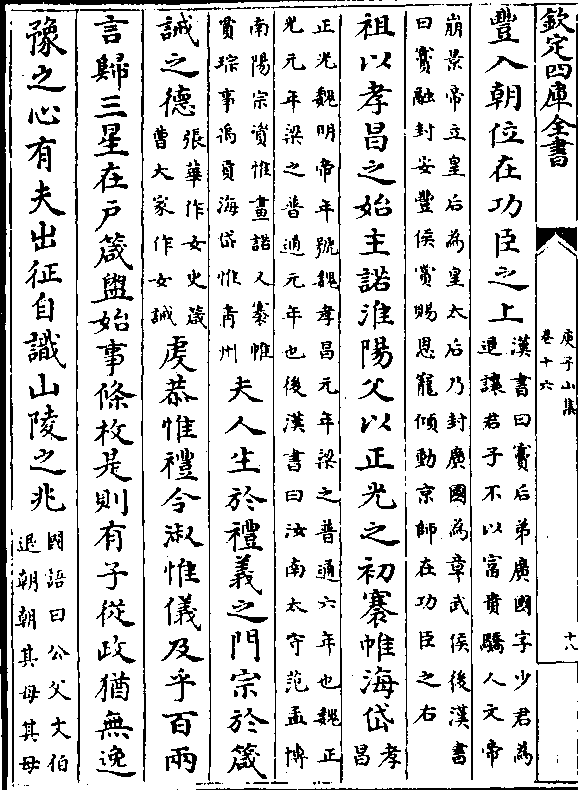 欽定四庫全書
庾子山集
卷十六
十八
豐入朝位在功臣之上
漢書曰竇后弟廣國字少君為
退讓君子不以富貴驕人文帝
崩景帝立皇后為皇太后乃封廣國為章武侯後漢書
曰竇融封安豐侯賞賜恩寵傾動京師在功臣之右
祖以孝昌之始主諾淮陽父以正光之初褰帷海岱
孝
昌
正光魏明帝年號魏孝昌元年梁之普通六年也魏正
光元年梁之普通元年也後漢書曰汝南太守范孟博
南陽宗資惟畫諾又褰帷
賈琮事禹貢海岱惟青州
夫人生於禮義之門宗於箴
誡之德
張華作女史箴
曹大家作女誡
虔恭惟禮令淑惟儀及乎百兩
言歸三星在戶箴盥始事條枚是則有子從政猶無逸
豫之心有夫出征自識山陵之兆
國語曰公父文伯
退朝朝其母其母